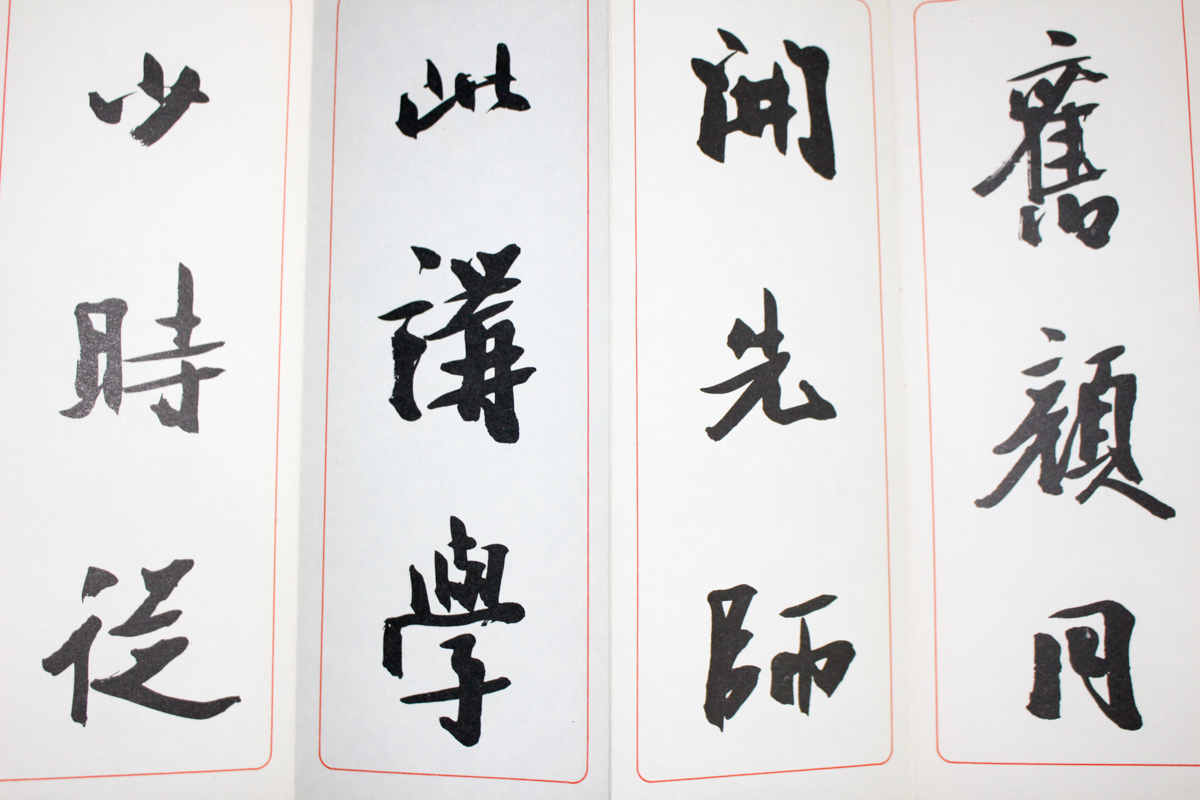 舊顏同
開先師
此講學
少時從